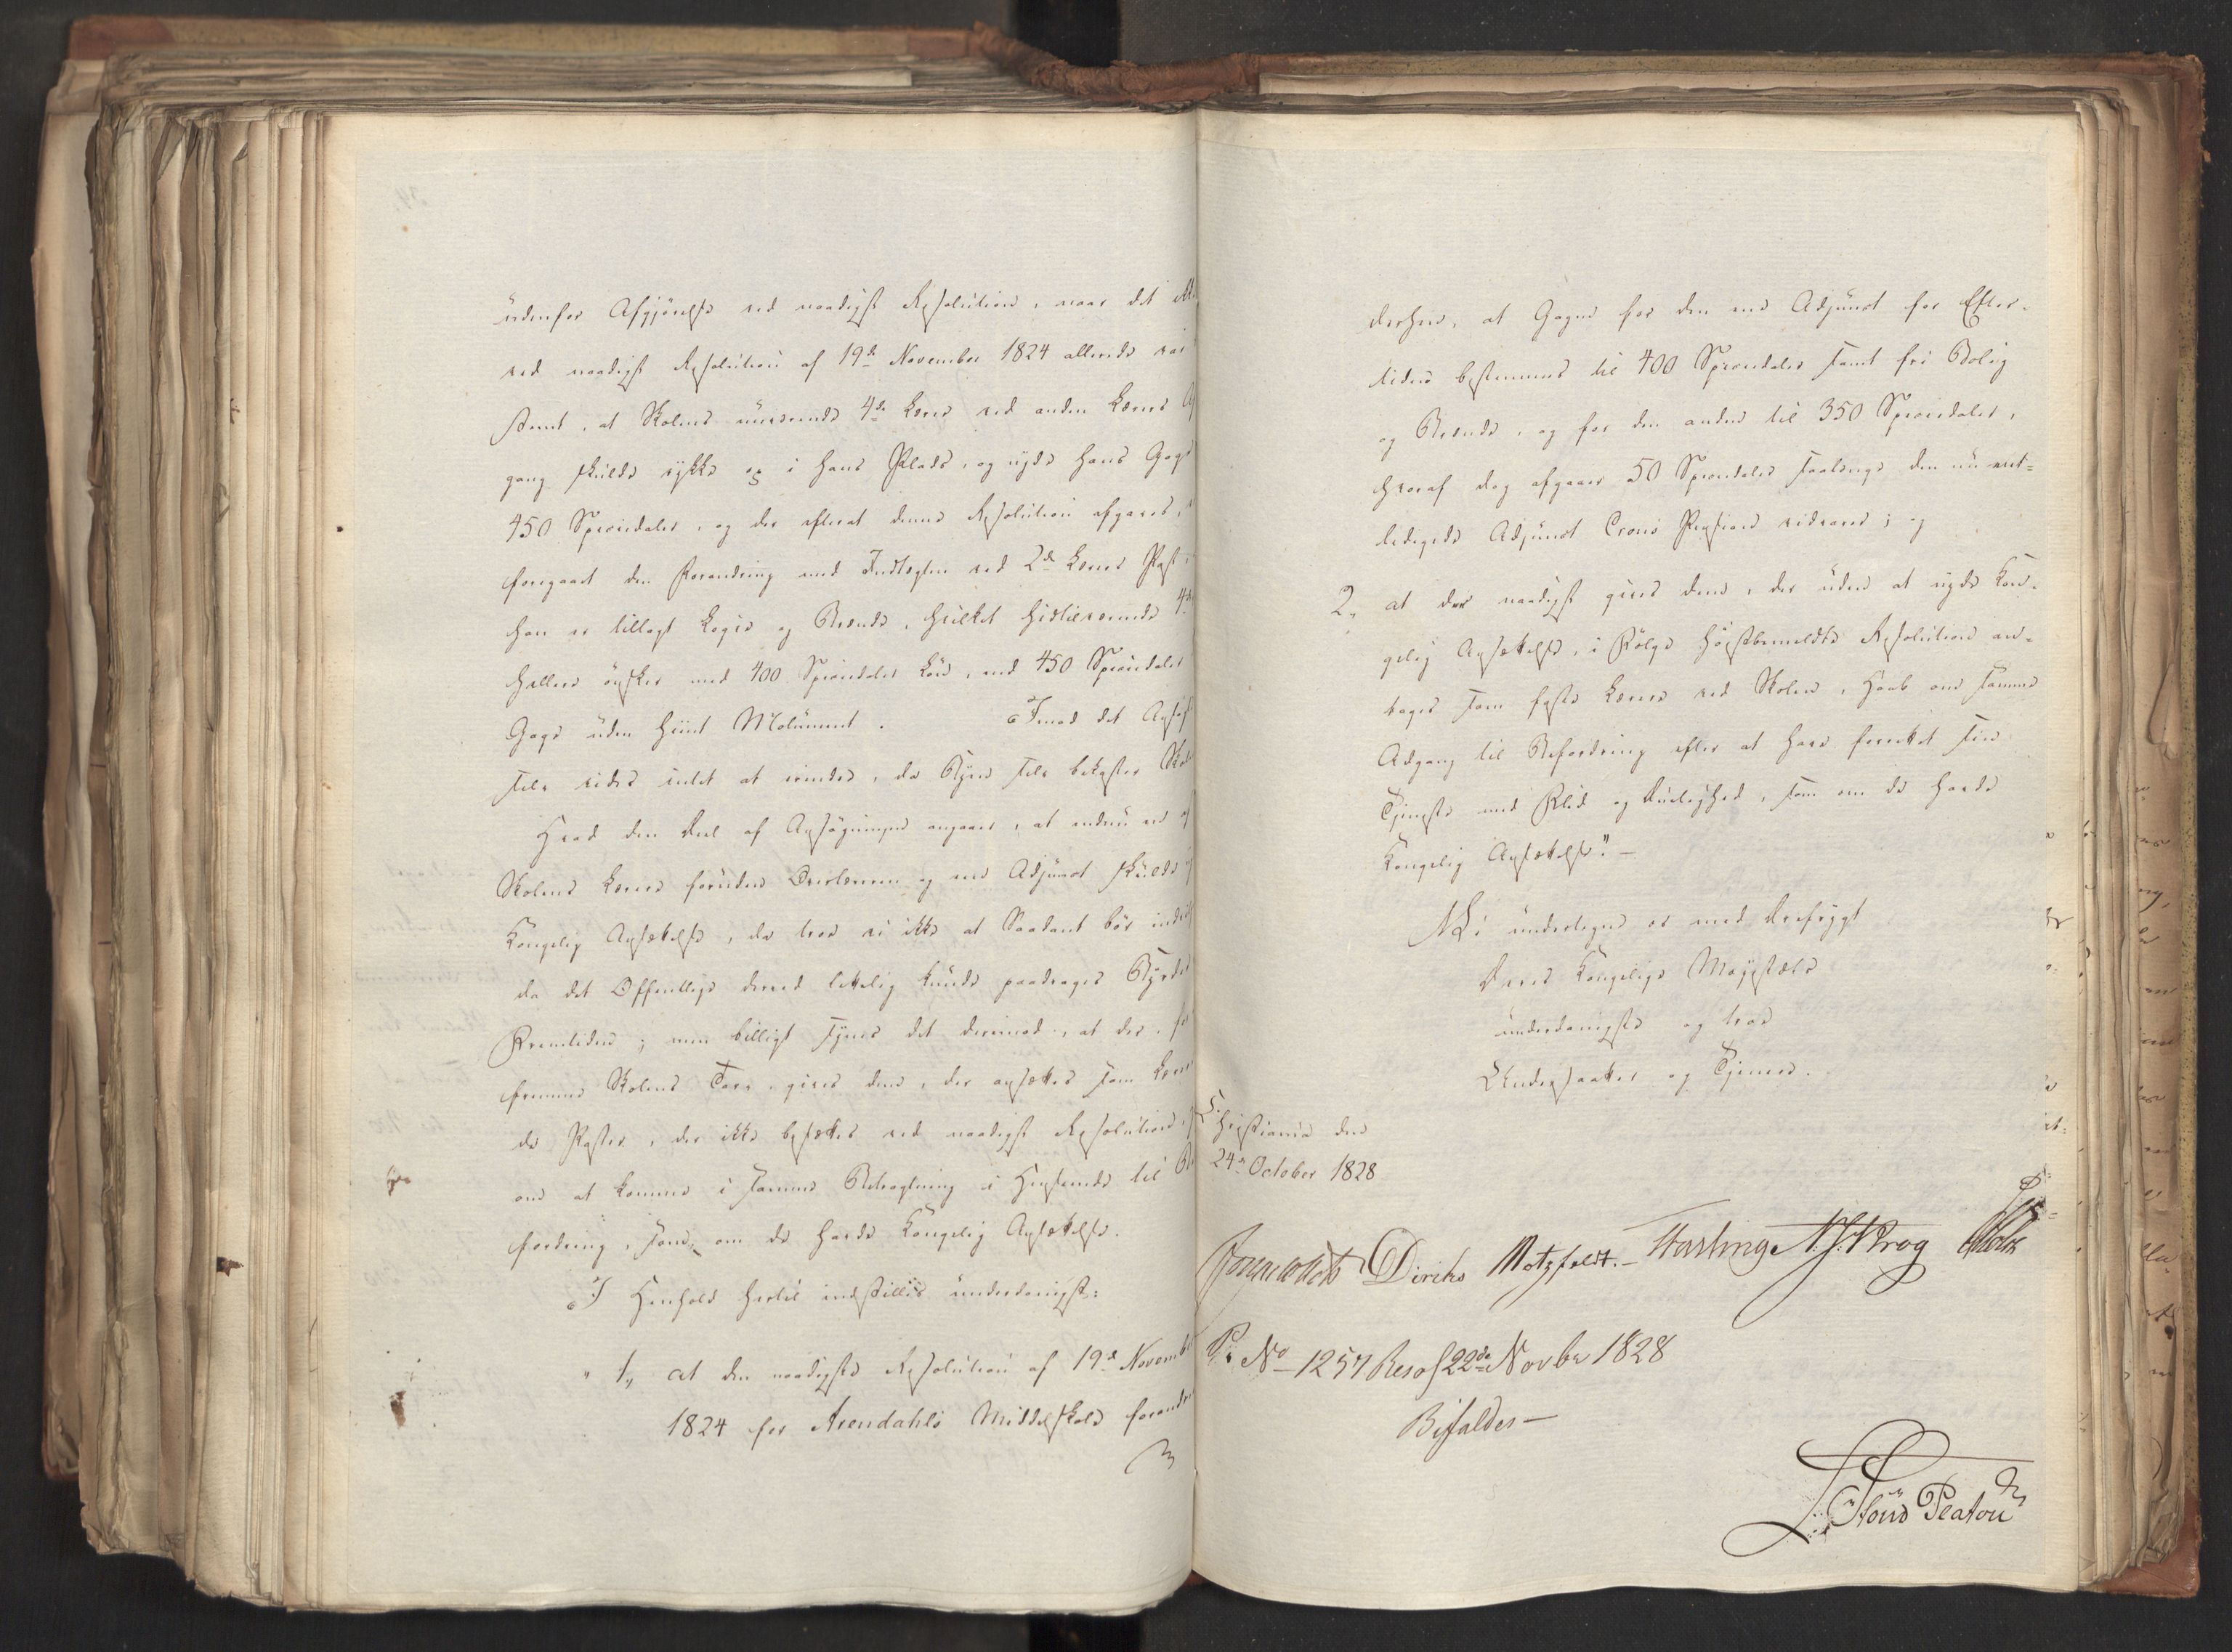 udenfor Afgjörelse ved naadigst Resolution, naar det ikke
ved naadigst Resolution af 19de November 1824 allerede var
stemt, at Skolens nuværende 4de Lærer ved anden Lærers Af
gang skulde rykke op i hans Plads, og nyde hans Gage
450 Speciedaler, og der efterat denne Resolution afgaves,
foregaaet den Forandring med Indtægten ved 2den Lærers Post,
han er tillagt Logis og Brænde, hvilket hidtilværende 4de
hellere ønsker med 400 Speciedaler Løn, end 450 Speciedaler
Gage uden hiint Molument. Imod det Ansøgte
selv vides intet at erindre, da Byen selv bekoster Skolen
Hvad den Deel af Ansøgningen angaaer, at endnu en af
Skolens Lærere foruden Overlæreren og een Adjunct skulde
Kongelig Ansættelse, da troe vi ikke at Saadant bør indvil
da det Offentlige derved lettelig kunde paadrages Byrder
Fremtiden; men billigt synes det derimod, at der, for
fremme Skolens Tarv, gives dem, der ansættes som Lærer
de Poster, der ikke besættes ved naadigst Resolution,
om at komme i samme Betragtning i Henseende til Be
fordring, som om de havde Kongelig Ansættelse.
I Henhold hertil indstilles underdanigst:
" 1, at den naadigste Resolution af 19de November
1824 for Arendahls Middelskole forandres
derhen, at Gagen for den ene Adjunct for Efter-
tiden bestemmes til 400 Speciedaler samt fri Bolig
og Brænde, og for den anden til 350 Speciedaler,
hvoraf dog afgaaer 50 Speciedaler saalænge den nu ent-
ledigede Adjunct Crons Pension vedvarer; og
2, at der naadigst gives dem, der uden at nyde Kon-
gelig Ansættelse, i Følge høistbemeldte Resolution an-
tages som faste Lærere ved Skolen, Haab om samme
Adgang til Befordring efter at have forrettet sin
Tjeneste med Flid og Duelighed, som om de havde
Kongelig Ansættelse". -
Vi undertegne os med Ærefrygt
Deres Kongelige Majestæts
underdanigste og troe
Undersaatter og Tjenere.
Christiania den
24de October 1828
Diriks Motzfeldt. - Fasting N. J. Krog Holst
Pr No 1257 Resol 22de Novbr 1828
Bifaldes -
B. Platou